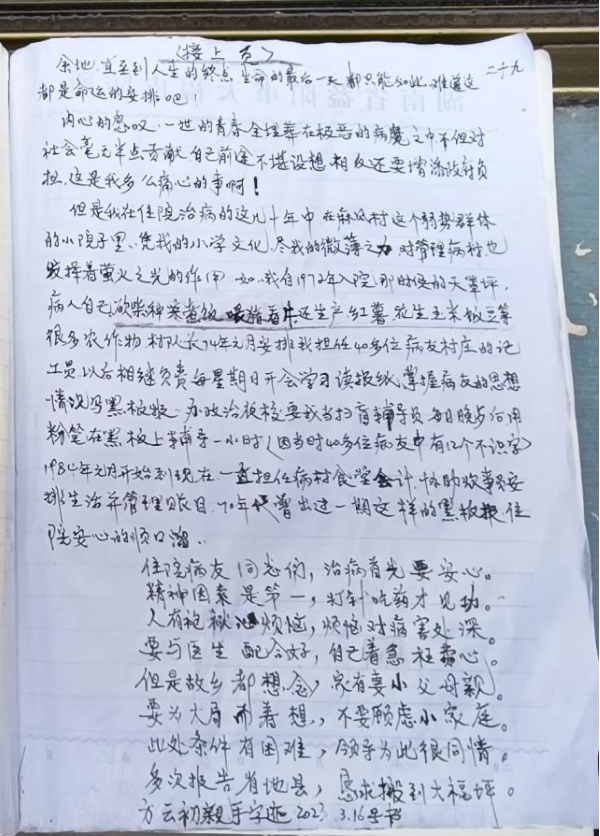 (接上页)
二十九
余地，直至到人生的终点，生命的最后一天都只能如此，难道这
都是命运的安排吧！
内心的悲叹，一世的青春全埋葬在极恶的病魔之中不但对
社会毫无半点贡献，自己前途不堪设想，相反还要增添政府负
担，这是我多么痛心的事啊！
但是我在住院治病的这几十年中，在麻风村这个弱势群体
的小院子里，凭我的小学文化，尽我的微薄之力，对管理病村，也
发挥着萤火之光的作用。如：我自1972年入院，那时候的天草坪，
病人自己砍柴种菜煮饭，喂猪看牛，还生产红薯花生玉米饭豆等
很多农作物，村队长74年元月安排我担任40多位病友村庄的记
工员，以后相继负责每星期日开会学习读报纸，掌握病友的思想
情况写黑板报。办政治夜校要我当扫盲辅导员，每日晚步间用
粉笔在黑板上辅导一小时(因当时40多位病友中有12个不识字)
1984年元月开始到现在，一直担任病村食堂会计，协助炊事员安
排生活并管理账目。70年代曾出过一期这样的黑板报，住
院安心的顺口溜：
住院病友同志们，治病首先要安心。
精神因素是第一，打针吃药才见功。
人有抱秘心烦恼，烦恼对病害处深。
要与医生配合好，自己着急枉费心。
但是故乡都想念，家有妻小父母亲。
要为大局而着想，不要顾虑小家庭。
此处条件有困难，领导为此很同情。
多次报告省地县，恳求搬到大福坪。
方云初亲手字迹 2023 3.16号书